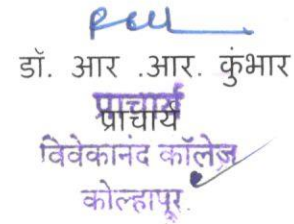 डॉ. आर .आर. कुंभार
प्राचार्य
प्राचार्य
विवेकानंद कॉलेज
कोल्हापूर.